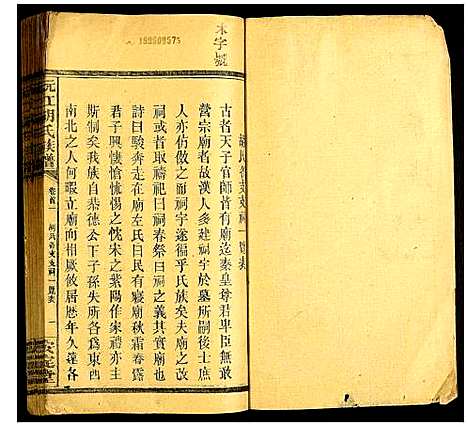 胡氏各支支祠一覽表
古者天子官師皆有廟迄秦皇尊君卑臣無敢
營宗廟者故漢人多建祠宇於墓所嗣後士庶
人亦仿傚之而祠宇遂徧乎氏族矣夫廟之改
祠或者取禱祀曰祠春祭曰祠之義其實廟也
詩曰駿奔走在廟左氏曰民有寢廟秋霜春露
君子興悽愴怵惕之忱宋之紫陽作家禮亦主
斯制矣我族自恭德公下子孫失所各爲東西
南北之人何暇立廟向相廠攸居歷年久遠各
沅江胡氏族譜
卷首一
祠
各支支祠一覽表
一
安定堂
禾字號
195509575